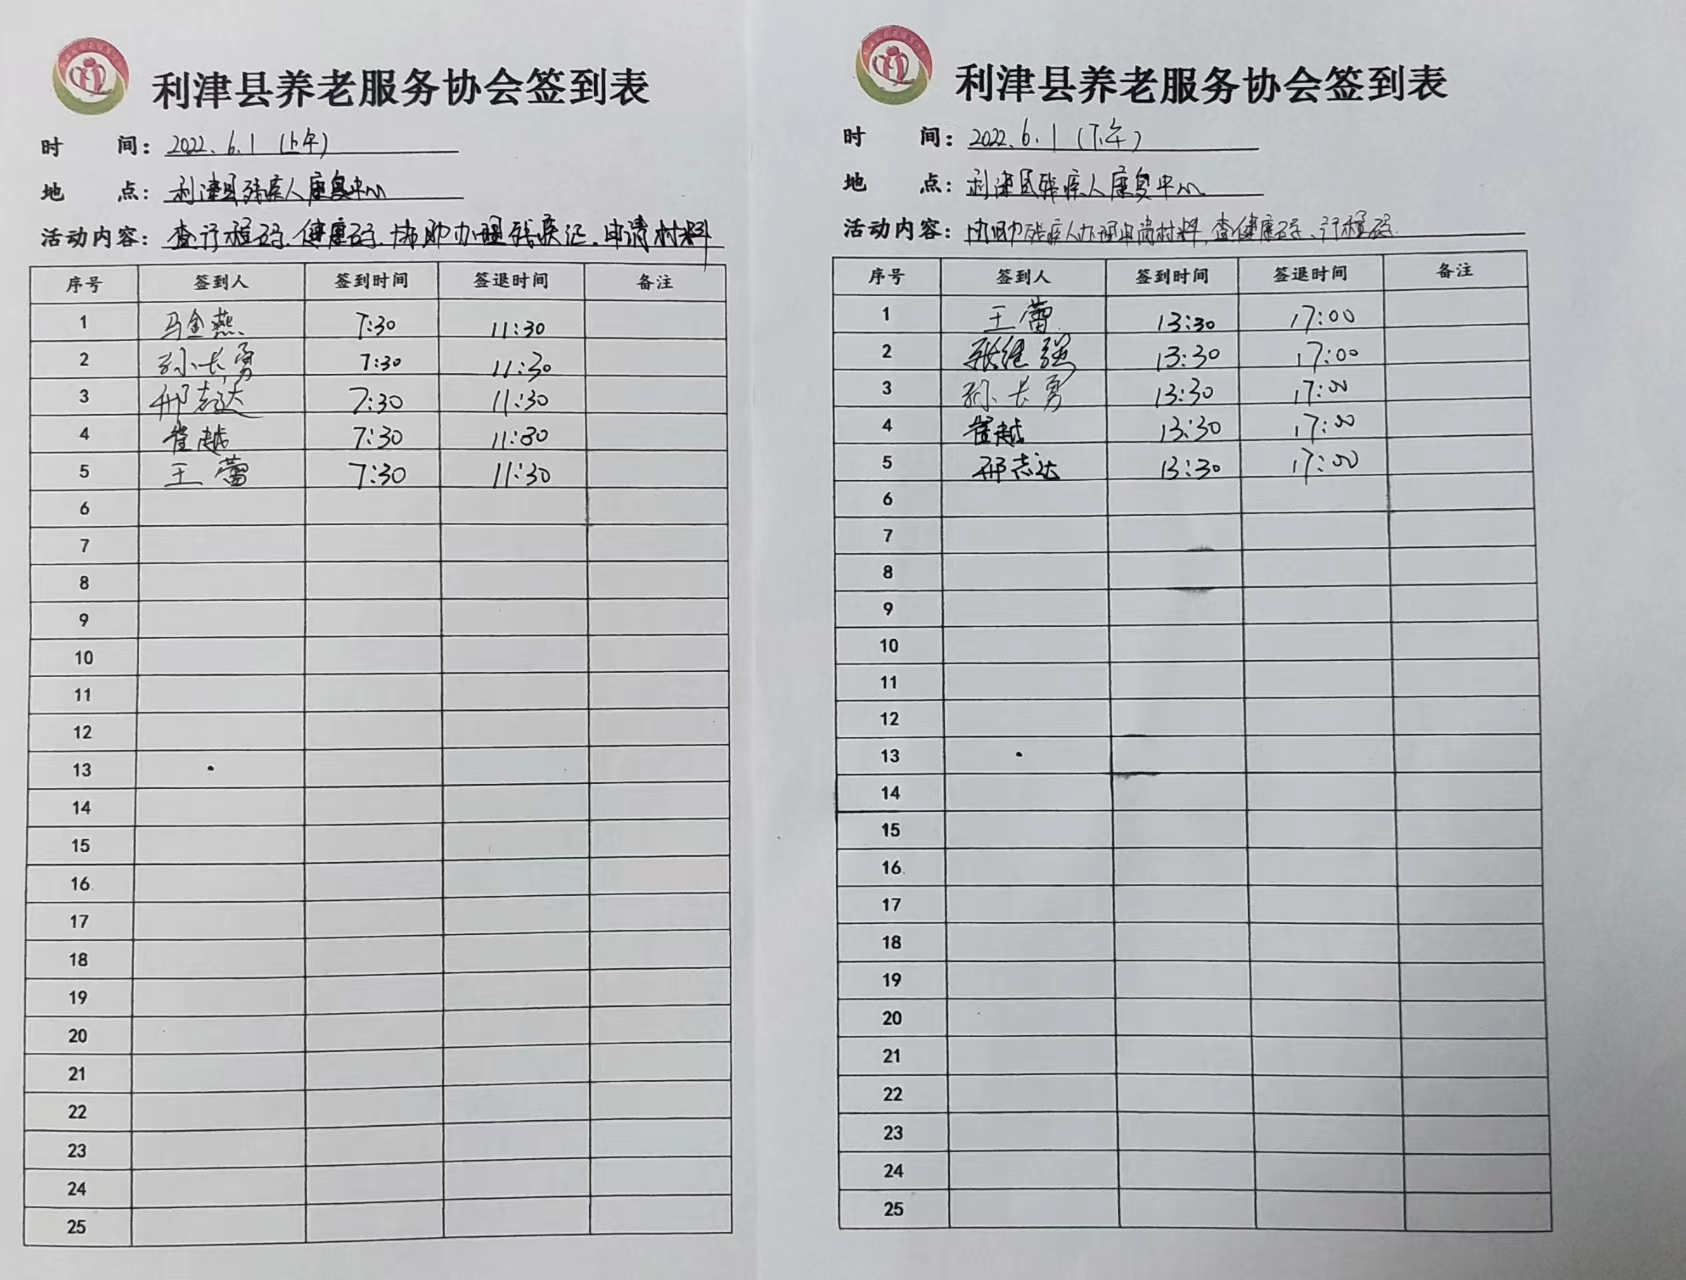 利津县养老服务协会签到表
时 间：2022.6.1（上午）
地 点：利津县残疾人康复中心
活动内容：查行程码、健康码、协助办理残疾证、申请材料
序号 签到人 签到时间 签退时间 备注
1 马金燕 7:30 11:30
2 孙长勇 7:30 11:30
3 邢志达 7:30 11:30
4 崔越 7:30 11:30
5 王蕾 7:30 11:30
6
7
8
9
10
11
12
13
14
15
16
17
18
19
20
21
22
23
24
25
利津县养老服务协会签到表
时 间：2022.6.1（下午）
地 点：利津县残疾人康复中心
活动内容：协助残疾人办理申请材料、查健康码、行程码
序号 签到人 签到时间 签退时间 备注
1 王蕾 13:30 17:00
2 张继强 13:30 17:00
3 孙长勇 13:30 17:00
4 崔越 13:30 17:00
5 邢志达 13:30 17:00
6
7
8
9
10
11
12
13
14
15
16
17
18
19
20
21
22
23
24
25